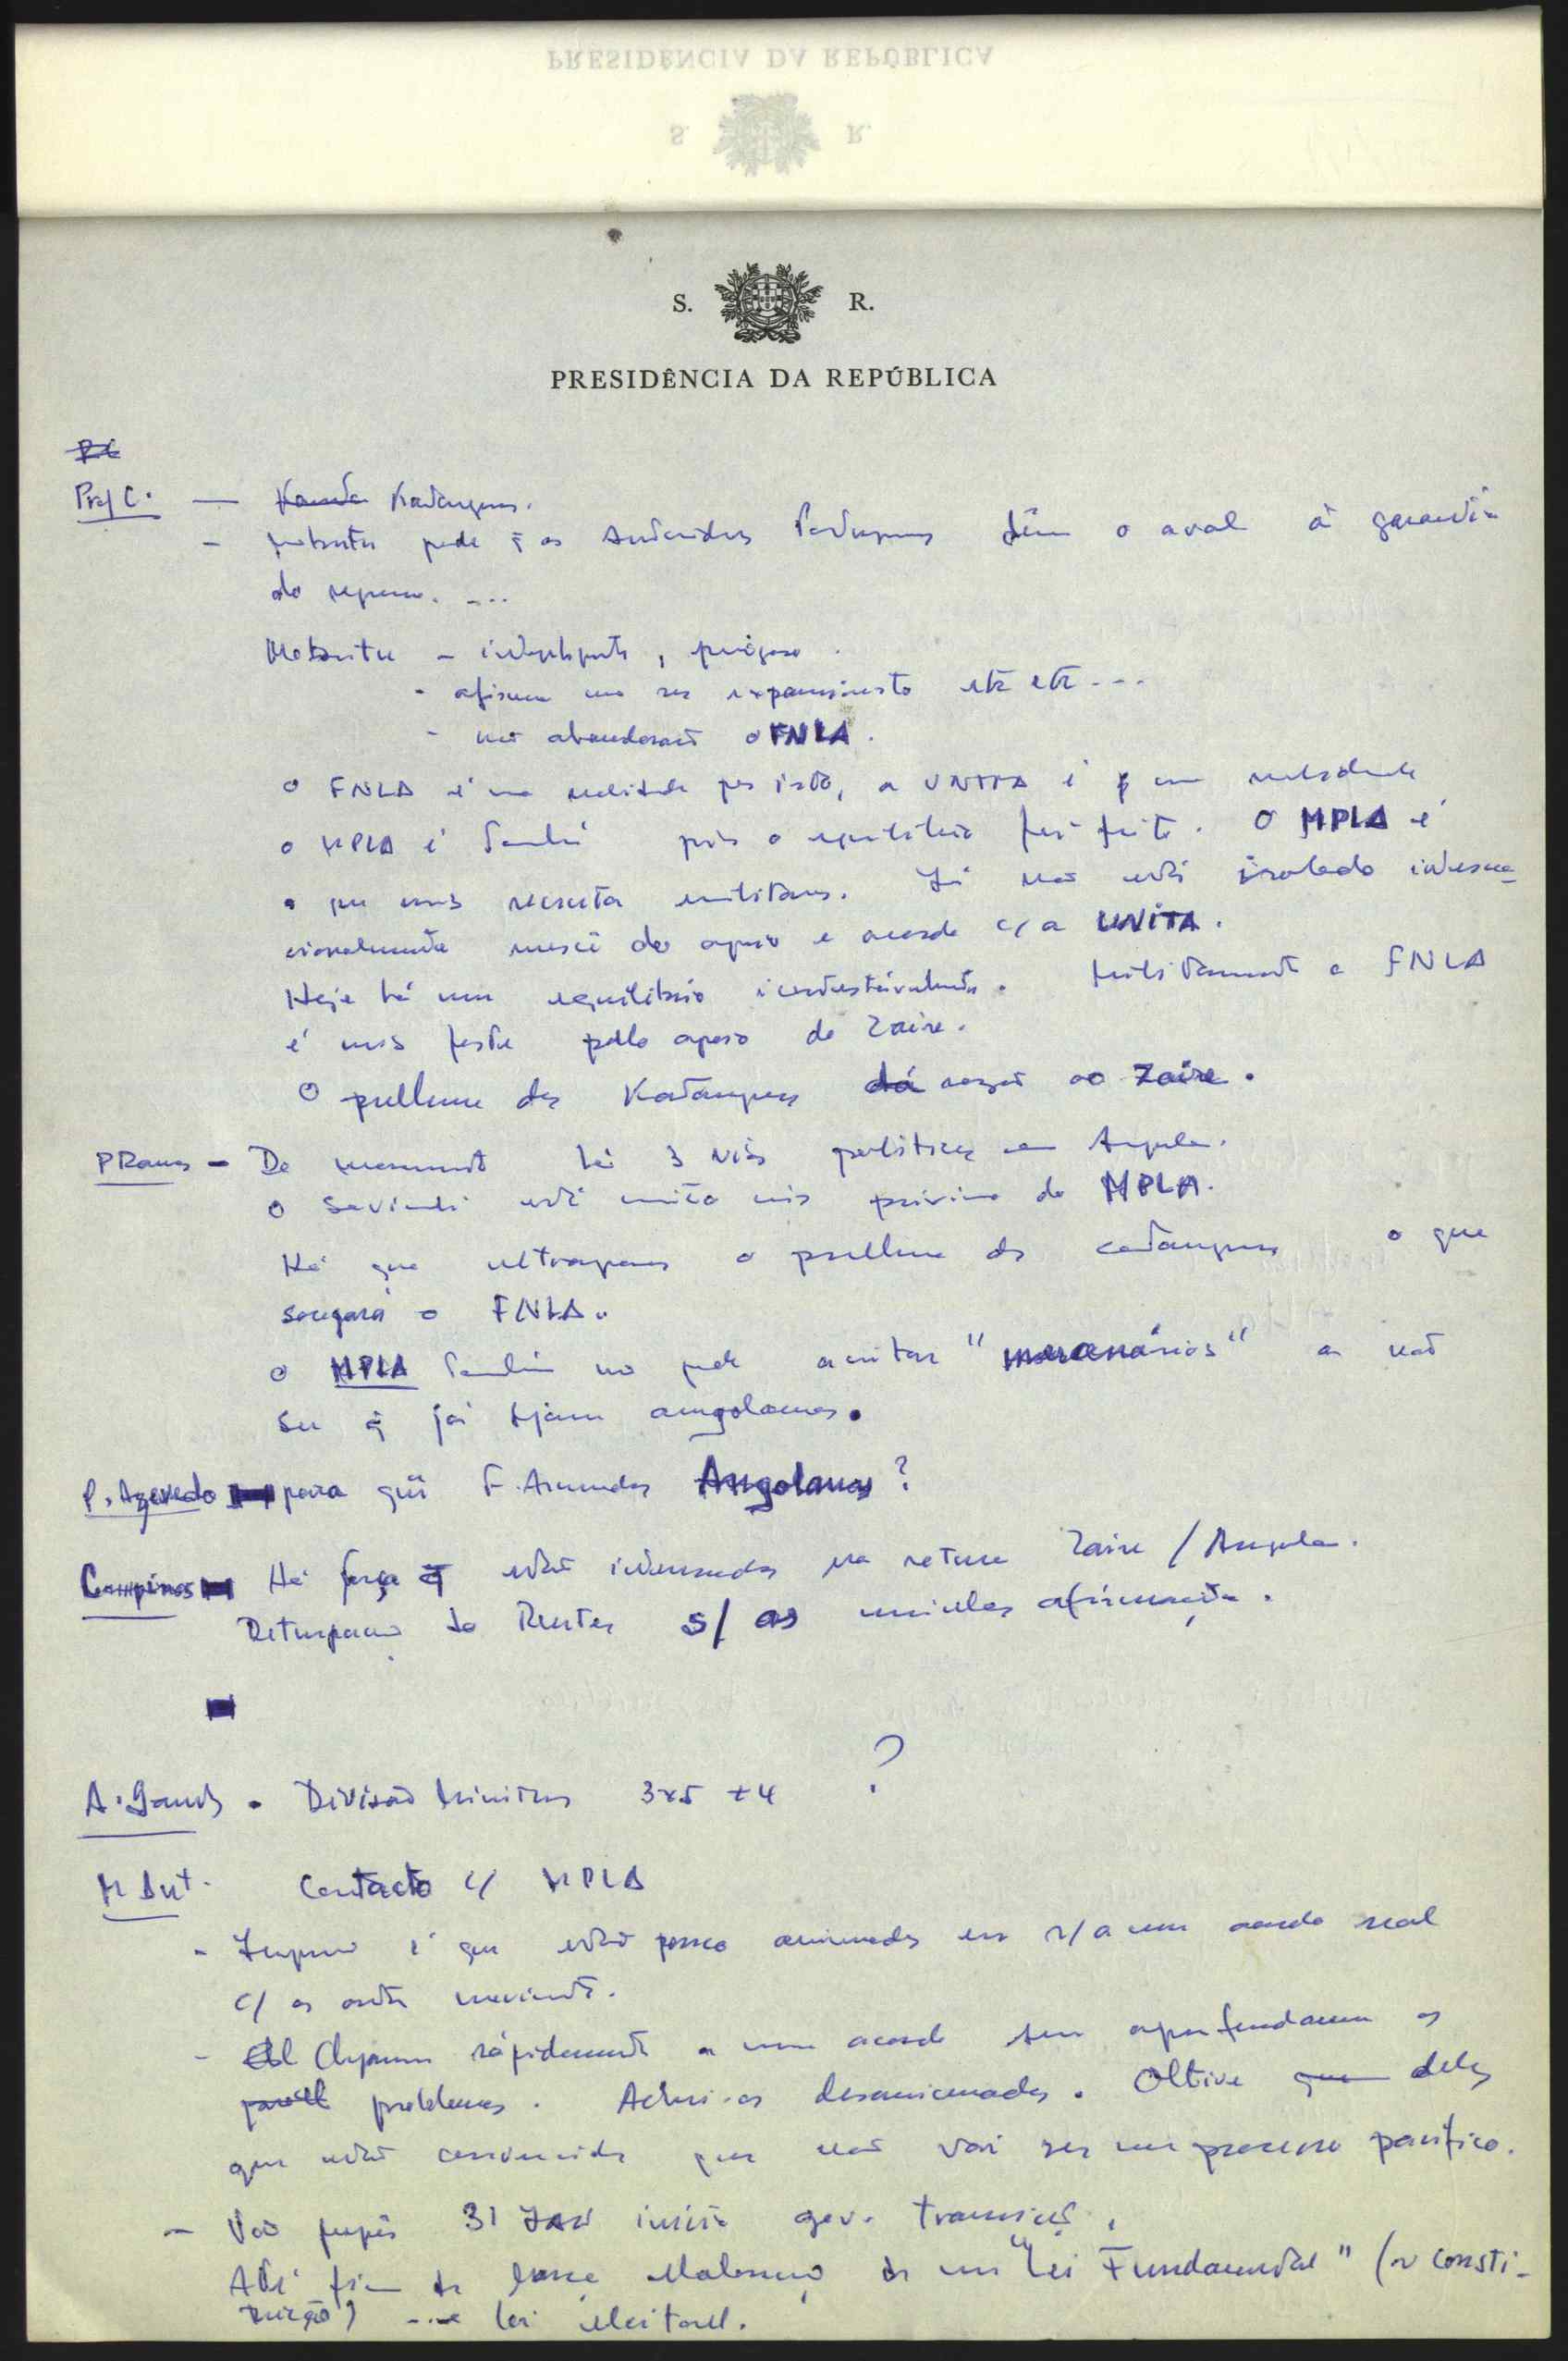 PRESIDÊNCIA DA REPÚBLICA
S. R.
S. R.
PRESIDÊNCIA DA REPÚBLICA
P.C
Prof C. — Katangueses.
- pede q̃ os dêm o aval à garantia
do regresso. ...
Mobutu - inteligente, perigoso.
- afirma não ser expansionista etc etc ...
- não abandonará o FNLA.
O FNLA é uma realidade por isto, a UNITA é
o MPLA é também pois o equilíbrio foi feito. O MPLA é
o que mais militares. Já não está isolado interna-
cionalmente mercê do apoio e acordo c/ a UNITA.
Hoje há um equilíbrio. Militarmente a FNLA
é mais forte pelo apoio do Zaire.
O problema dos Katangueses dá razão ao Zaire.
P Ramos - De momento há 3 vias políticas em Angola.
O Savimbi está muito mais próximo do MPLA.
Há que ultrapassar o problema dos catangueses o que
sossegará o FNLA.
O MPLA também não pode aceitar "mercenários" a não
ser q̃ já sejam angolanos.
P. Azevedo para quê F. Armadas Angolanas?
Campinos Há força q̃ estão interessadas na rotura Zaire / Angola.
Deturpação da Reuter s/ as minhas afirmações.
A. Santos - Divisão Ministros 3x5 + 4 ?
M Ant. Contacto c/ MPLA
- é que estão pouco animados em um acordo real
c/ os outros movimentos.
- Chegaram rápidamente a um acordo sem aprofundarem os
problemas. Achei-os desanimados. Obtive deles
que estão convencidos que não vai ser um processo pacífico.
- Vão 31 JAN início gov. transição,
Até fim de elaboração de um "Lei Fundamental" (ou consti-
tuição) ... e lei eleitoral.